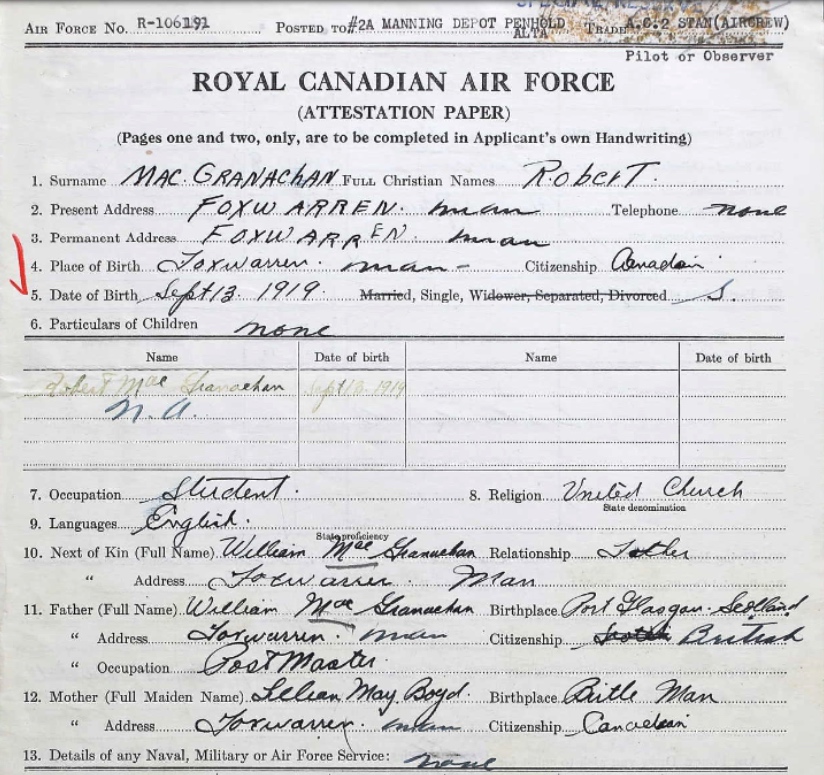 AIR FORCE No. R-106191 POSTED TO #2A MANNING DEPOT PENHOLD ALTA TRADE A.C.2 STAN(AIRCREW)
Pilot or Observer
ROYAL CANADIAN AIR FORCE
(ATTESTATION PAPER)
(Pages one and two, only, are to be completed in Applicant's own Handwriting)
1. Surname MAC GRANACHAN FULL Christian Names RoberT.
2. Present Address FOXWARREN. man Telephone none
3. Permanent Address FOXWARREN. man
4. Place of Birth Foxwarren. man- Citizenship Canadain
5. Date of Birth Sept 13. 1919. Married, Single, Widower, Separated, Divorced S.
6. Particulars of Children none
Name Date of birth Name Date of birth
Robert Mac Granachan Sept 13. 1919
N. A.
7. Occupation Student. 8. Religion United Church
State denomination
9. Languages English.
State proficiency
10. Next of Kin (Full Name) William Mac Granachan Relationship Father
" Address Foxwarren. Man
11. Father (Full Name) William Mac Granachan Birthplace Port Glasgow. Scotland
" Address Foxwarren. man Citizenship Scotch British
" Occupation Post Master.
12. Mother (Full Maiden Name) Lillian May Boyd. Birthplace Birtle Man
" Address Foxwarren. man Citizenship Canadain
13. Details of any Naval, Military or Air Force Service: none